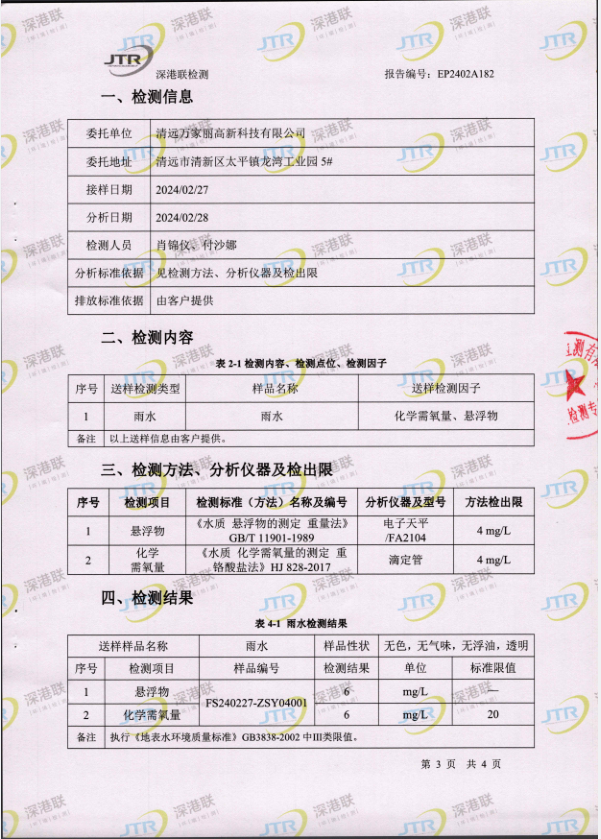 JTR
深港联检测 报告编号：EP2402A182
一、检测信息
委托单位 清远万家丽高新科技有限公司
委托地址 清远市清新区太平镇龙湾工业园 5#
接样日期 2024/02/27
分析日期 2024/02/28
检测人员 肖锦仪、付沙娜
分析标准依据 见检测方法、分析仪器及检出限
排放标准依据 由客户提供
二、检测内容
表 2-1 检测内容、检测点位、检测因子
序号 送样检测类型 样品名称 送样检测因子
1 雨水 雨水 化学需氧量、悬浮物
备注 以上送样信息由客户提供。
三、检测方法、分析仪器及检出限
序号 检测项目 检测标准（方法）名称及编号 分析仪器及型号 方法检出限
1 悬浮物 《水质 悬浮物的测定 重量法》 GB/T 11901-1989 电子天平 /FA2104 4 mg/L
2 化学 需氧量 《水质 化学需氧量的测定 重 铬酸盐法》HJ 828-2017 滴定管 4 mg/L
四、检测结果
表 4-1 雨水检测结果
送样样品名称 雨水 样品性状 无色，无气味，无浮油，透明
序号 检测项目 样品编号 检测结果 单位 标准限值
1 悬浮物 FS240227-ZSY04001 6 mg/L —
2 化学需氧量 6 mg/L 20
备注 执行《地表水环境质量标准》GB3838-2002 中III类限值。
第 3 页 共 4 页